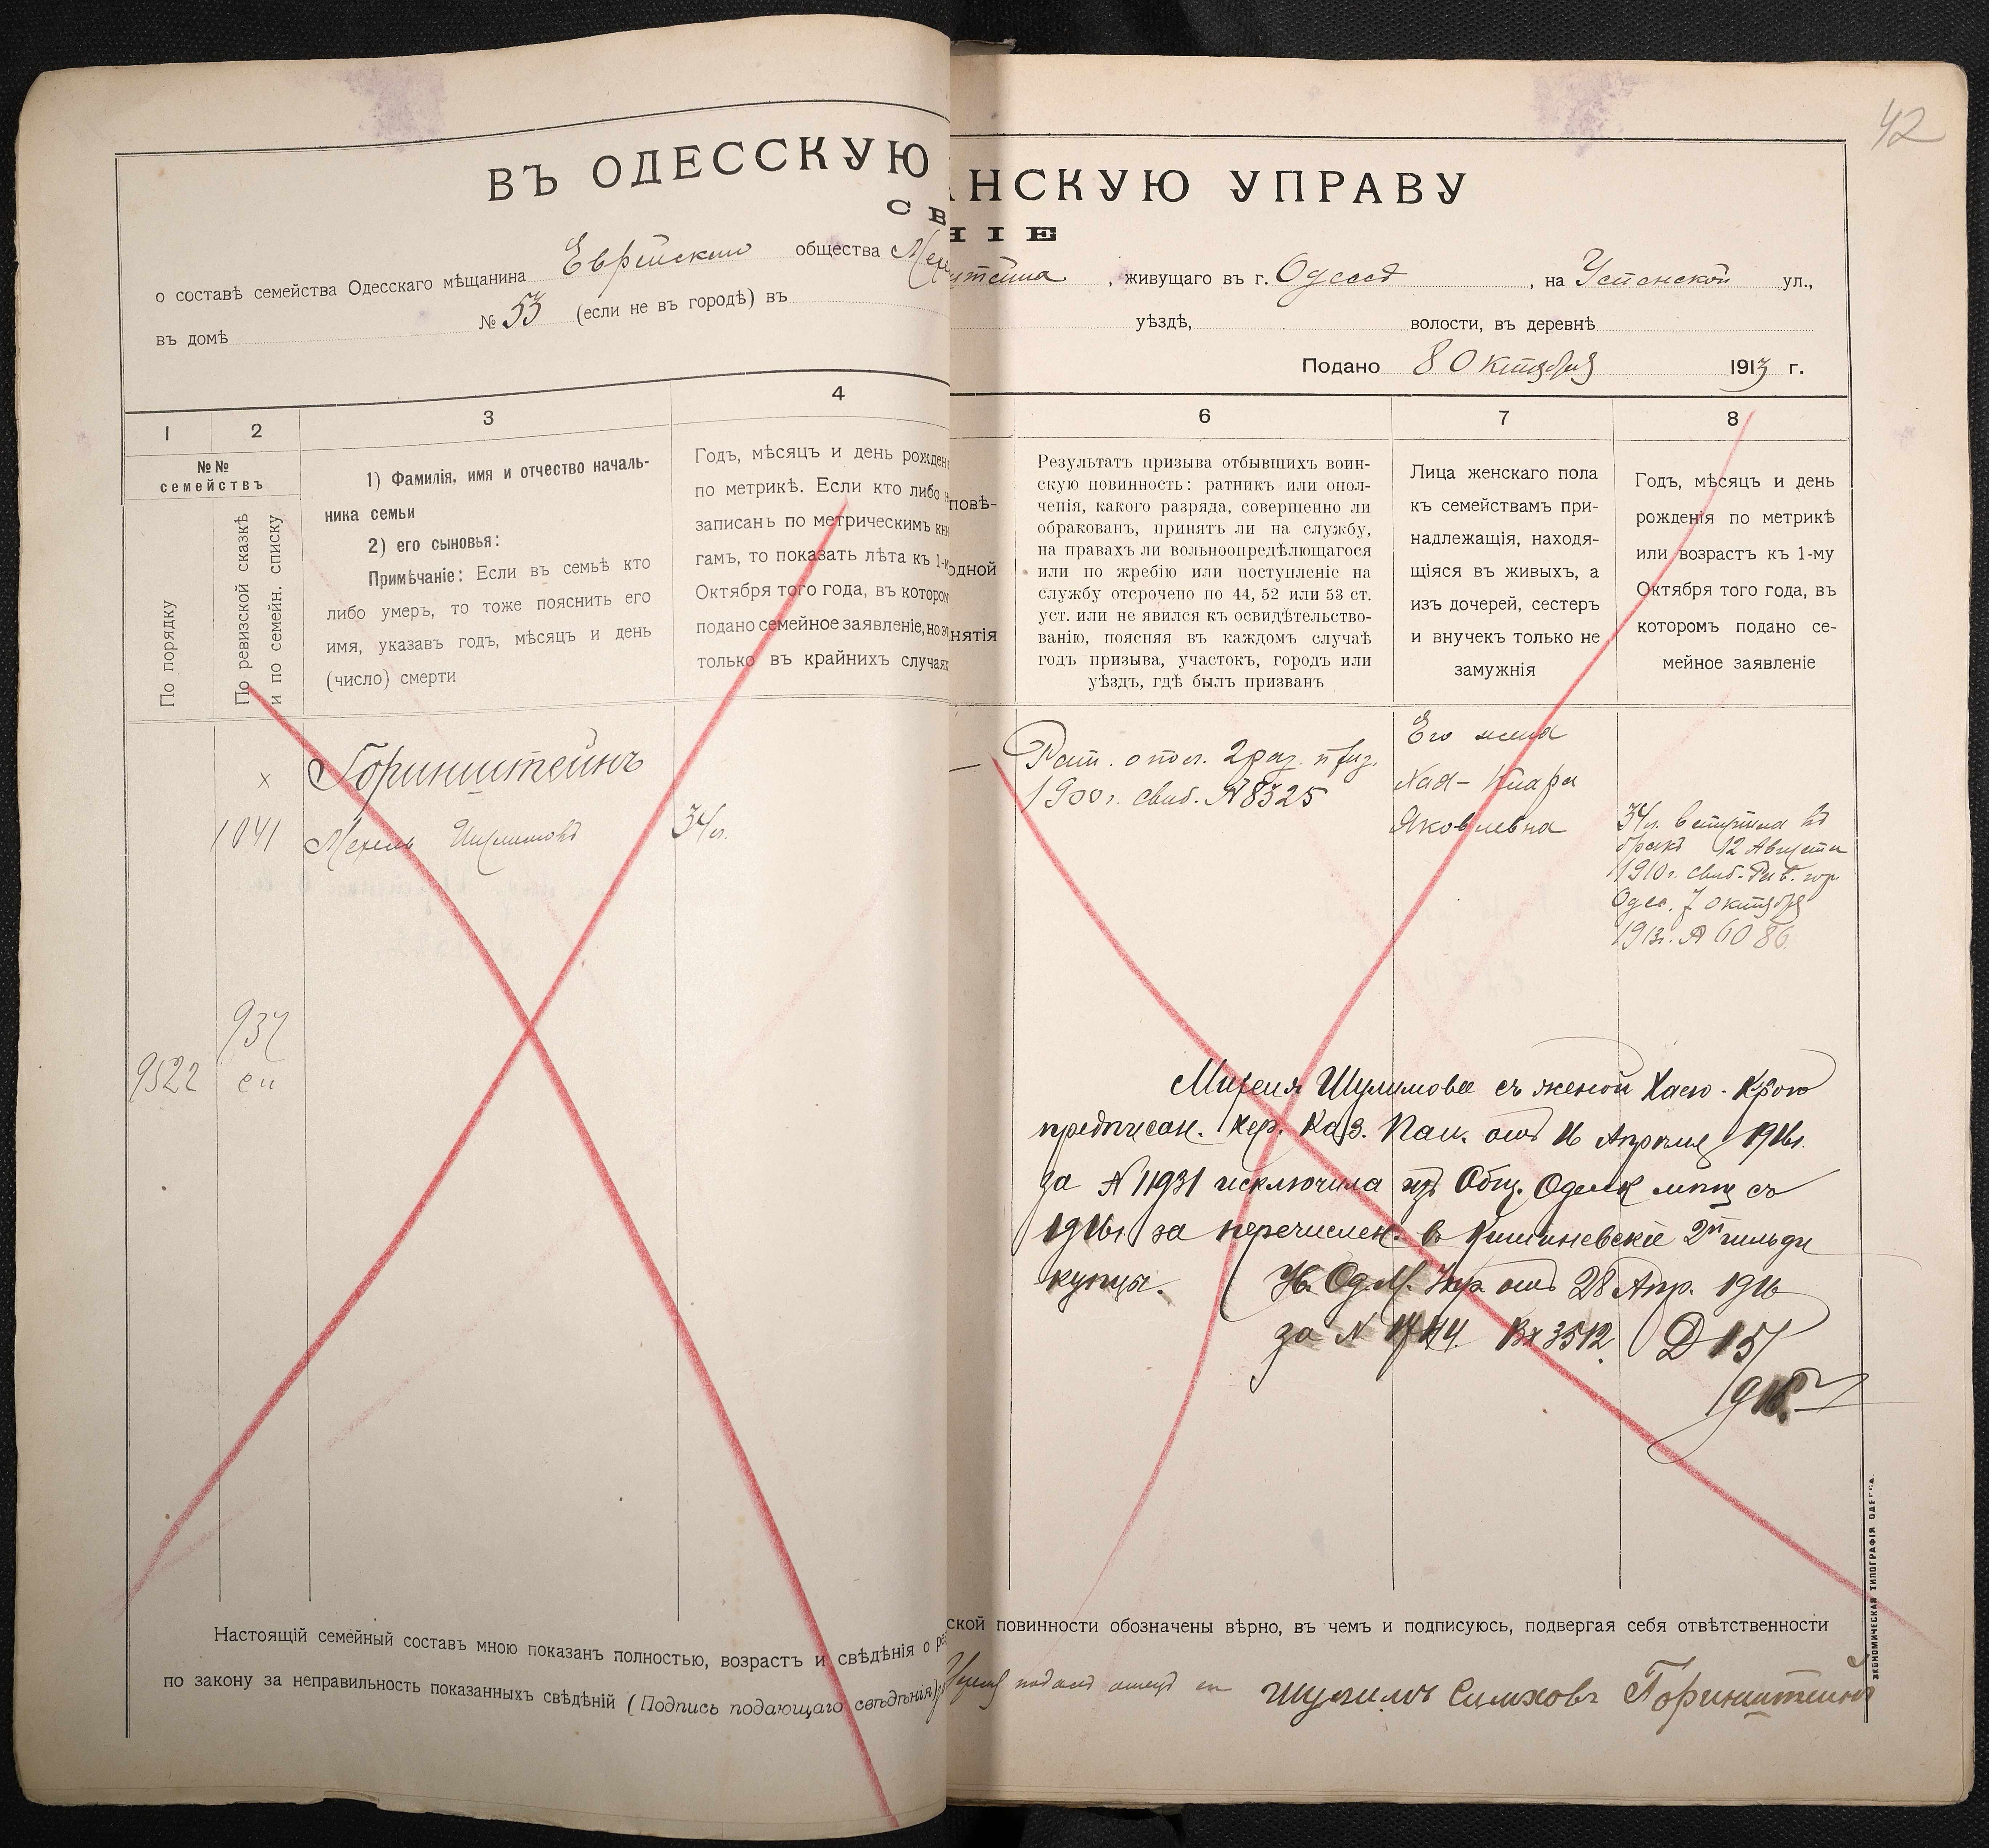 42
ВЪ ОДЕССКУЮ
НСКУЮ УПРАВУ
СВ
НІЕ
о составѣ семейства Одесскаго мѣщанина Еврейскаго общества Мех
штейна, живущаго въ г. Одессѣ, на Успенской ул.,
въ домѣ № 53 (если не въ городѣ) въ
уѣздѣ, волости, въ деревнѣ
Подано 8 Октября 1913 г.
1
2
3
4
6
7
8
№№
семействъ
По порядку
По ревизской сказкѣ
и по семейн. списку
1) Фамилія, имя и отчество началь-
ника семьи
2) его сыновья:
Примѣчаніе: Если въ семьѣ кто
либо умеръ, то тоже пояснить его
имя, указавъ годъ, мѣсяцъ и день
(число) смерти
Годъ, мѣсяцъ и день рожден
по метрикѣ. Если кто либо н
записанъ по метрическимъ кни
гамъ, то показать лѣта къ 1-м
Октября того года, въ котором
подано семейное заявленіе, но эт
только въ крайнихъ случаях
повѣ-
одной
нятія
Результатъ призыва отбывшихъ воин-
скую повинность: ратникъ или опол-
ченія, какого разряда, совершенно ли
обракованъ, принятъ ли на службу,
на правахъ ли вольноопредѣлющагося
или по жребію или поступленіе на
службу отсрочено по 44, 52 или 53 ст.
уст. или не явился къ освидѣтельство-
ванію, поясняя въ каждомъ случаѣ
годъ призыва, участокъ, городъ или
уѣздъ, гдѣ былъ призванъ
Лица женскаго пола
къ семействамъ при-
надлежащія, находя-
щіяся въ живыхъ, а
изъ дочерей, сестеръ
и внучекъ только не
замужнія
Годъ, мѣсяцъ и день
рожденія по метрикѣ
или возрастъ къ 1-му
Октября того года, въ
которомъ подано се-
мейное заявленіе
х
Горинштейнъ
1041
Мехель Шулимовъ
34 л.
Рат. опол. 2 раз. приз.
1900 г. свид. № 8325
Его жена
Хая-Клара
Яковлевна
34 л. вступила въ
бракъ 12 Августа
1910 г. свид. Рав. гор
Одес. 7 октября
1913 г. № 6086
937
9522
сп
Шулимова съ женой Хаею-
предписан. Хер. Каз. Пал. отъ 16 Апрѣля 1916 г.
за № 11931 исключила изъ Общ. Одесск мѣщ съ
1916 г за перечислен. въ Кишиневскіе 2й гильди
купцы. Н. Од. М. Упр. отъ 28 Апр. 1916
за № Вх 3512. Д 15/
916.
Настоящій семейный составъ мною показанъ полностью, возрастъ и свѣдѣнія о ре
ской повинности обозначены вѣрно, въ чемъ и подписуюсь, подвергая себя отвѣтственности
по закону за неправильность показанныхъ свѣдѣній (Подпись подающаго свѣдѣнія)
подалъ отецъ его Шулимъ Симховъ Горинштейнъ
ЭКОНОМИЧЕСКАЯ ТИПОГРАФІЯ ОДЕССА.